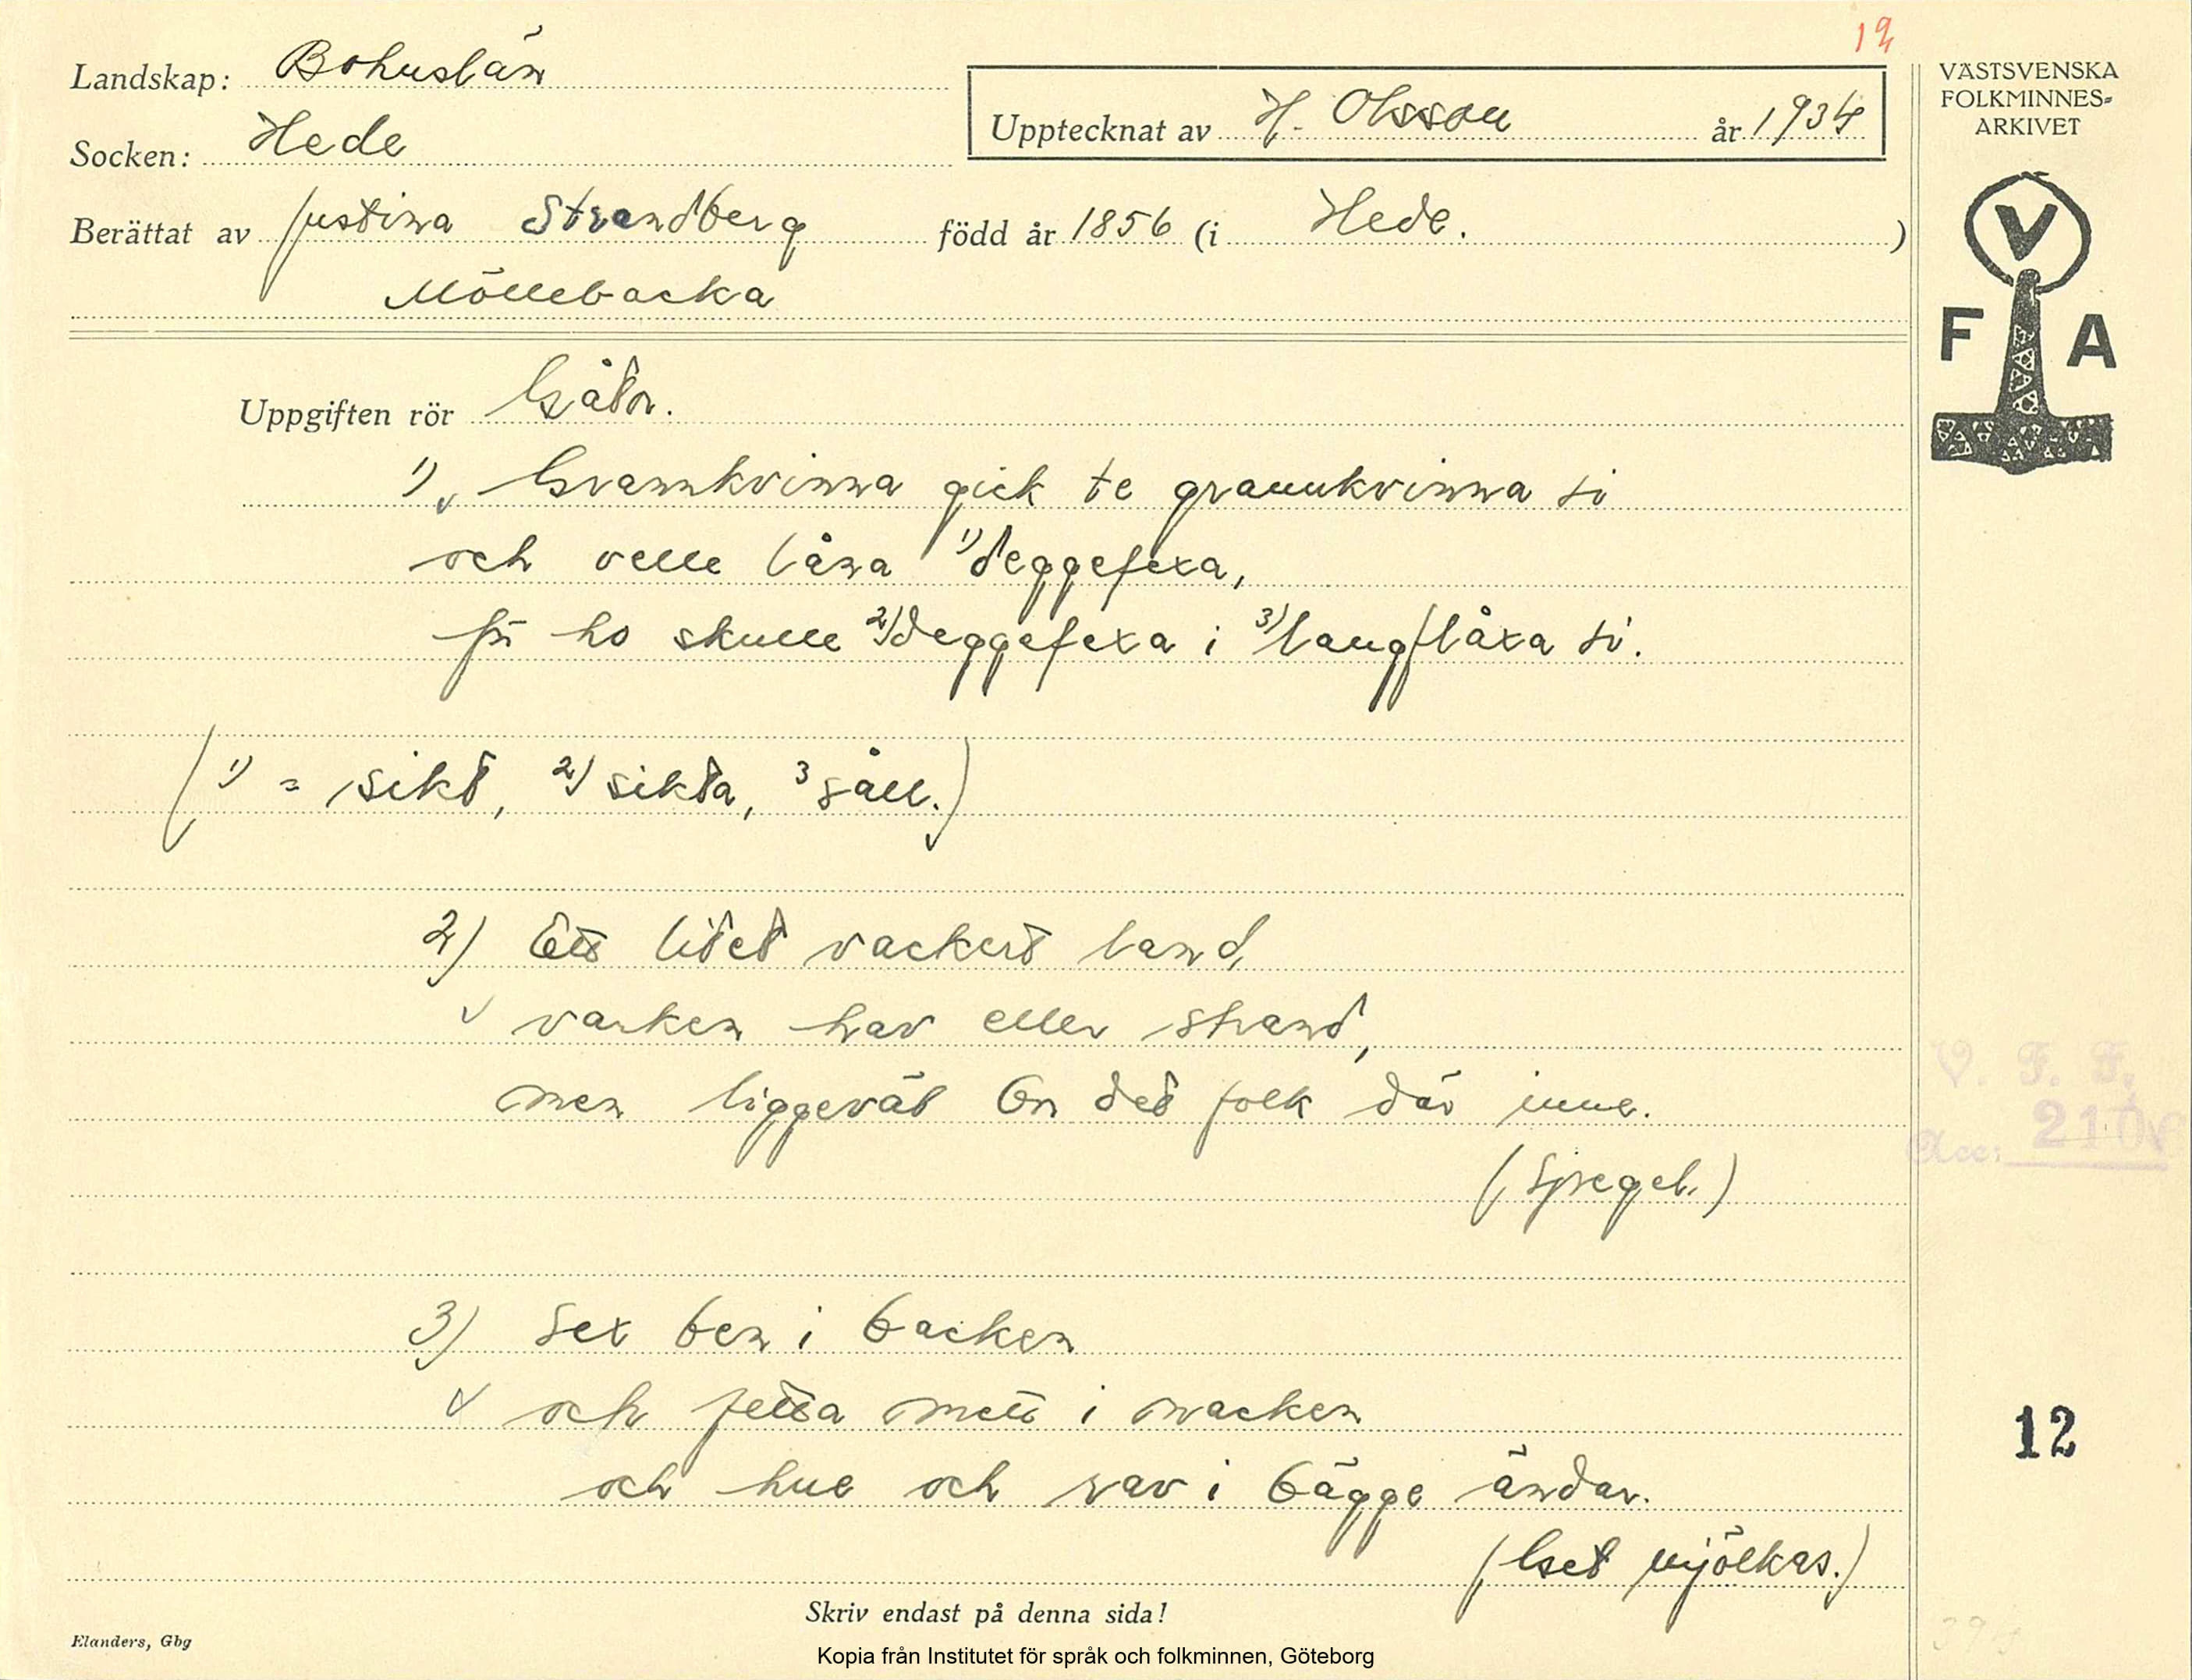 12
Landskap: Bohuslän
Upptecknat av H. Olsson år 1934
Socken: Hede
Berättat av Justina Strandberg född år 1856 (i Hede.)
Möllebacka
VÄSTSVENSKA
FOLKMINNES-
ARKIVET
V
F A
Uppgiften rör Gåtor.
1) Grannkvinna gick te grannkvinna si
och velle låna 1) deggefexa,
för ho skulle 2) deggefexa i 3) langflåxa si.
(1) = sikt, 2) sikta, 3 såll.)
2) Ett litet vackert land,
varken hav eller strand,
men liggeväl bor det folk där inne.
(Spegel.)
3) Sex ben i backen
och fetta mett i nacken
och hue och rav i bägge ändar.
(Get mjölkas.)
V. F. F.
Acc: 210
12
Skriv endast på denna sida!
Elanders, Gbg
Kopia från Institutet för språk och folkminnen, Göteborg